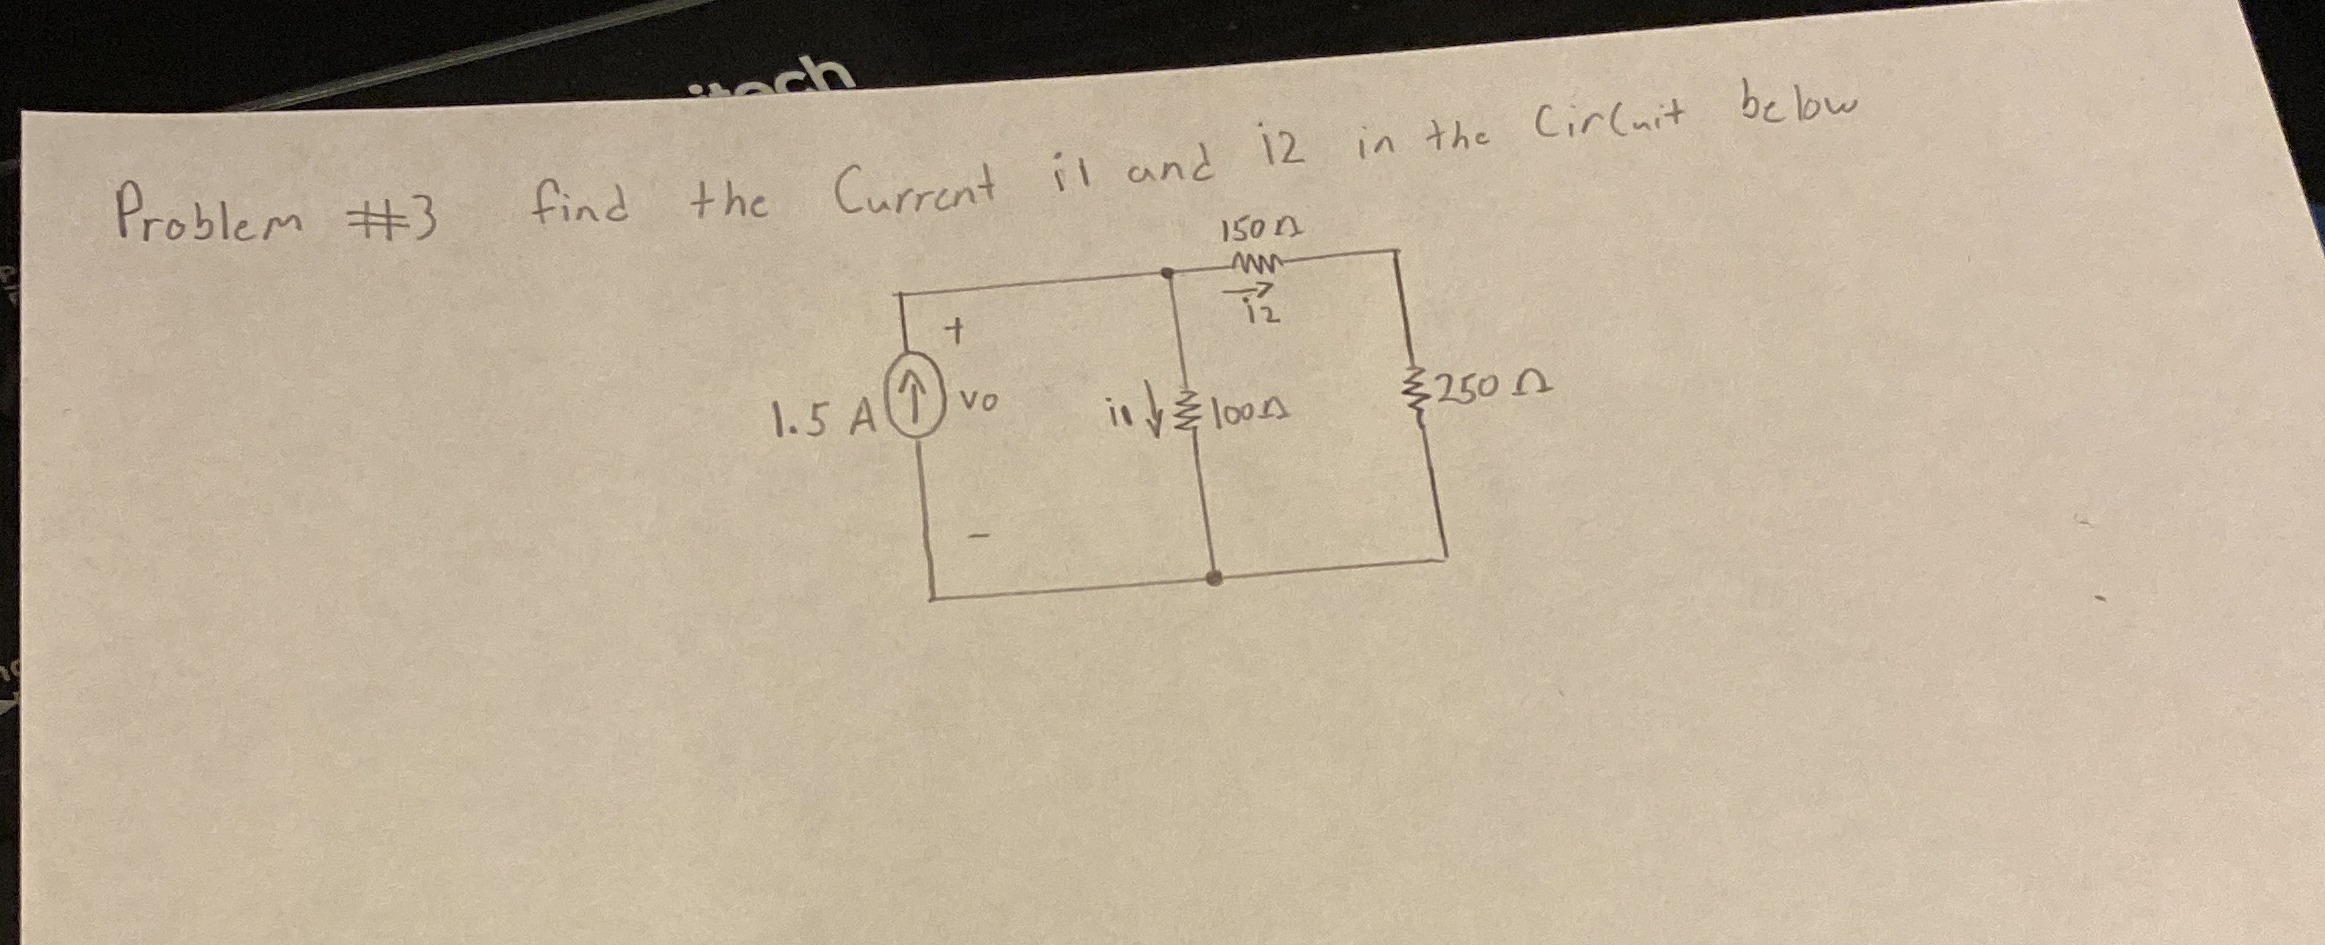 Problem #3 find the Current i1 and i2 in the Circuit below
150 Ω
i2
+
1.5 A
vo
i1
100Ω
250 Ω
-